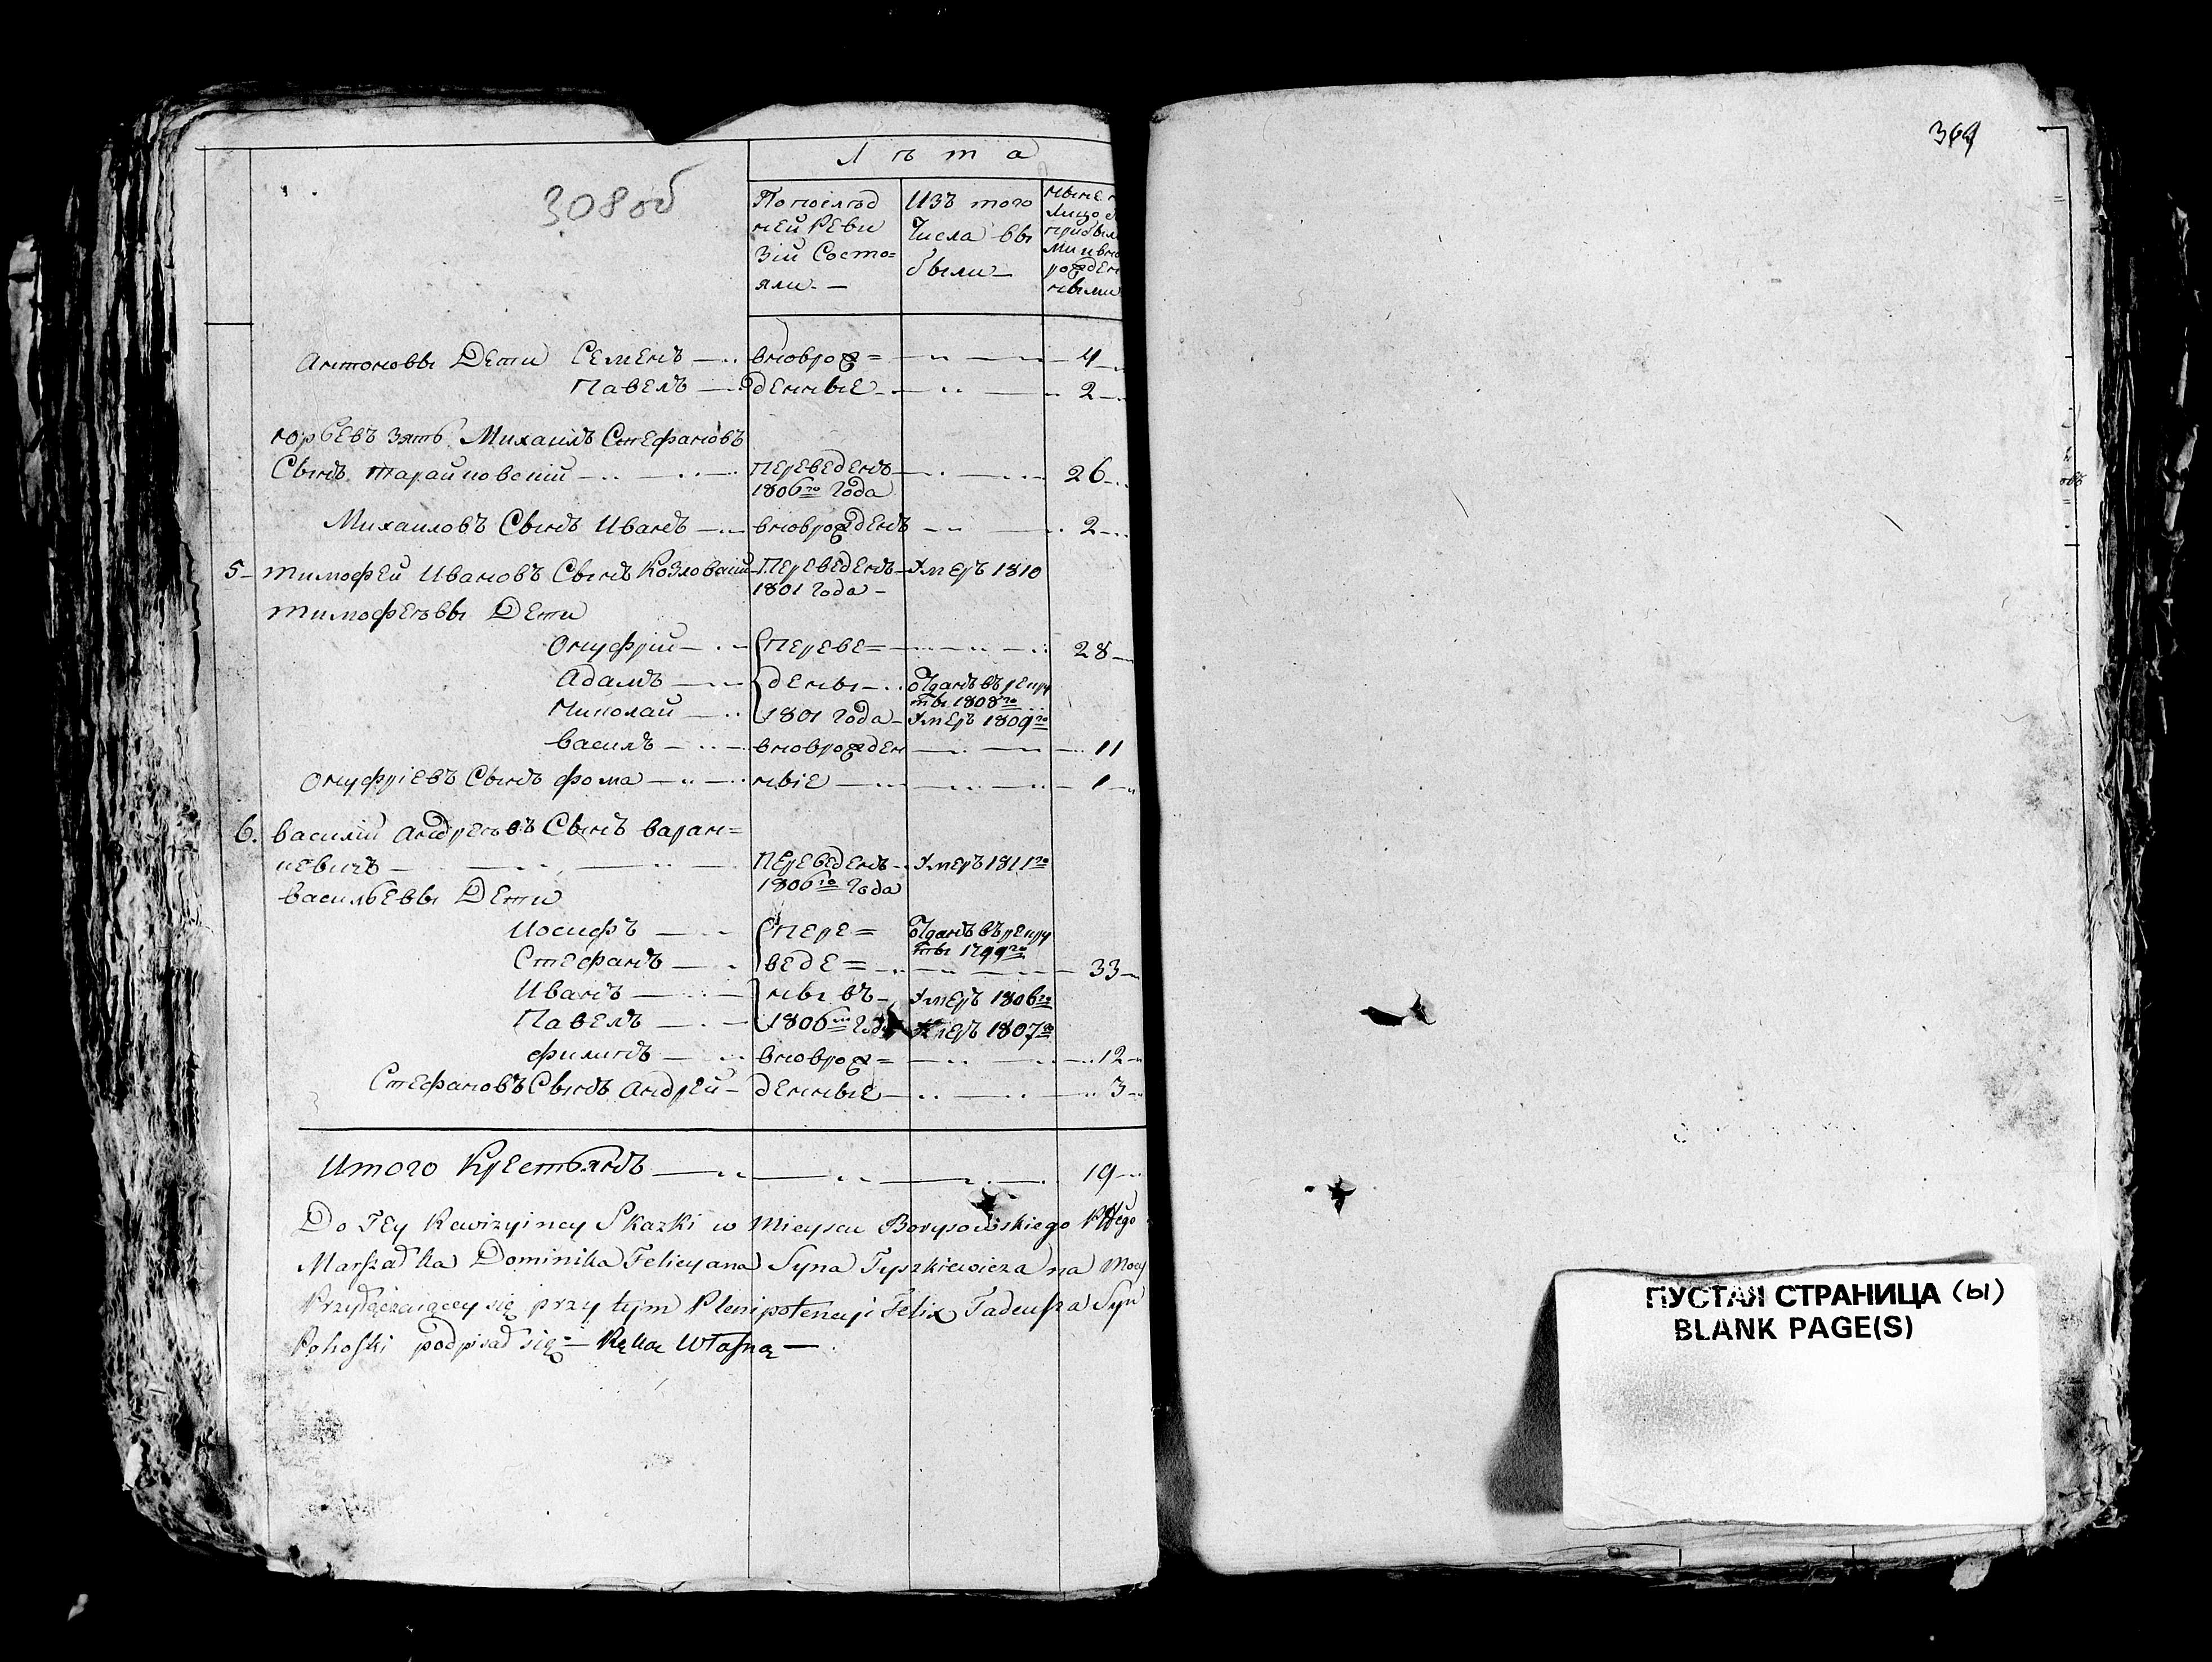 308 об
Лѣта
По послѣд
ней Реви
зіи Состо=
яли —
Изъ того
Числа вы
были —
ныне
лицо
прибыл
ми и вно
рожден
ными
Антоновы Дети Семенъ — внорож= — 4
Павелъ — денные — 2
Юрьевъ зять Михаилъ Стефановъ
Сынъ Тарайковскій — Переведенъ — 26
1806го Года
Михаиловъ Сынъ Иванъ — внорожденъ — 2
5 — Тимофей Ивановъ Сынъ Козловскій — Переведенъ — Умеръ 1810
1801 Года —
Тимофеѣвы Дети
Онуфрій — Переве= — 28
Адамъ — дены — Отданъ въ рекру
ты 1808го
Николай — 1801 Года — Умеръ 1809го
Василъ — внорожден — 11
Онуфріевъ Сынъ Фома — ные — 1
6. Василій Андреѣвъ Сынъ Варан=
кевичъ — Переведенъ — Умеръ 1811го
1806го Года
Васильевы Дети
Иосифъ — Пере= Отданъ въ рекру
ты 1799го
Стефанъ — веде= — 33
Иванъ — ны въ — Умеръ 1806го
Павелъ — 1806м Году Умеръ 1807го
Филипъ — внорож= — 12
Стефановъ Сынъ Андрей — денные — 3
Итого Крестьянъ — 19
Do Tey Rewizyiney Skazki w Mieyscu Borysowskiego
Marszałka Dominika Felicyana Syna Tyszkiewicza na Mocy
Przyłączaiącey się przy tym Plenipotencyi Felix Tadeusza Syn
Pohoski podpisał się — Ręką Własną —
369
ПУСТАЯ СТРАНИЦА (Ы)
BLANK PAGE(S)